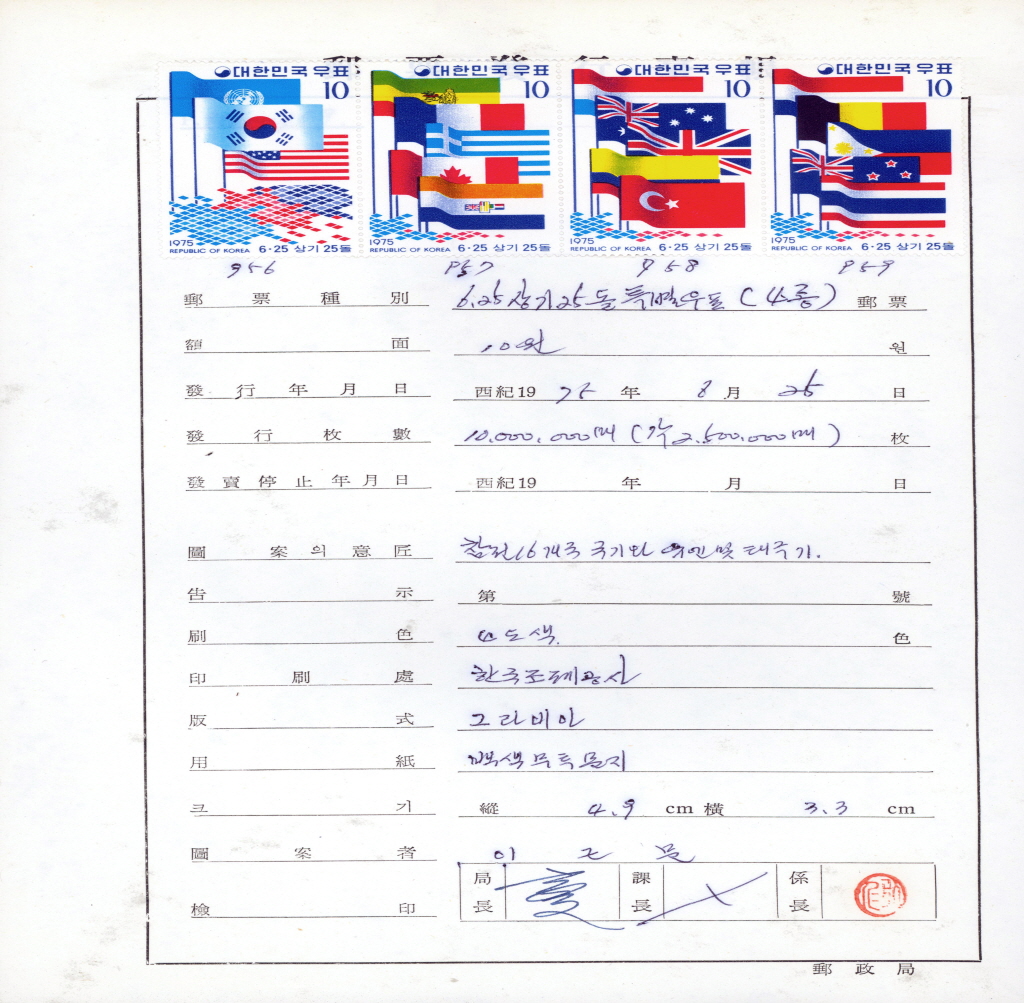 대한민국우표 대한민국우표 대한민국우표 대한민국우표
10 10 10 10
1975 1975 1975 1975
REPUBLIC OF KOREA 6·25 상기 25돌 REPUBLIC OF KOREA 6·25 상기 25돌 REPUBLIC OF KOREA 6·25 상기 25돌 REPUBLIC OF KOREA 6·25 상기 25돌
956 957 958 959
郵票種別 6.25 상기 25돌 특별우표 (4종) 郵票
額面 10원 원
發行年月日 西紀19 75 年 8 月 25 日
發行枚數 10.000.000매 (각 2.500.000매) 枚
發賣停止年月日 西紀19 年 月 日
圖案의意匠 참전 16개국 국기와 유엔 및 태극기.
告示 第 號
刷色 색. 色
印刷處 한국조폐공사
版式 그라비아
用紙 백색무투문지
크기 縱 4.9 cm 橫 3.3 cm
圖案者 이 근 문
檢印 局長 課長 係長
郵政局